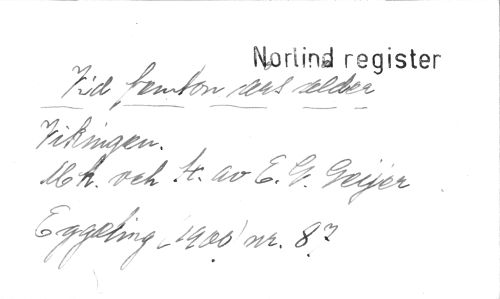 Norlind register
Vid femton års ålder
Vikingen.
Mk. och t. av E. G. Geijer
Eggeling (1900) nr. 87